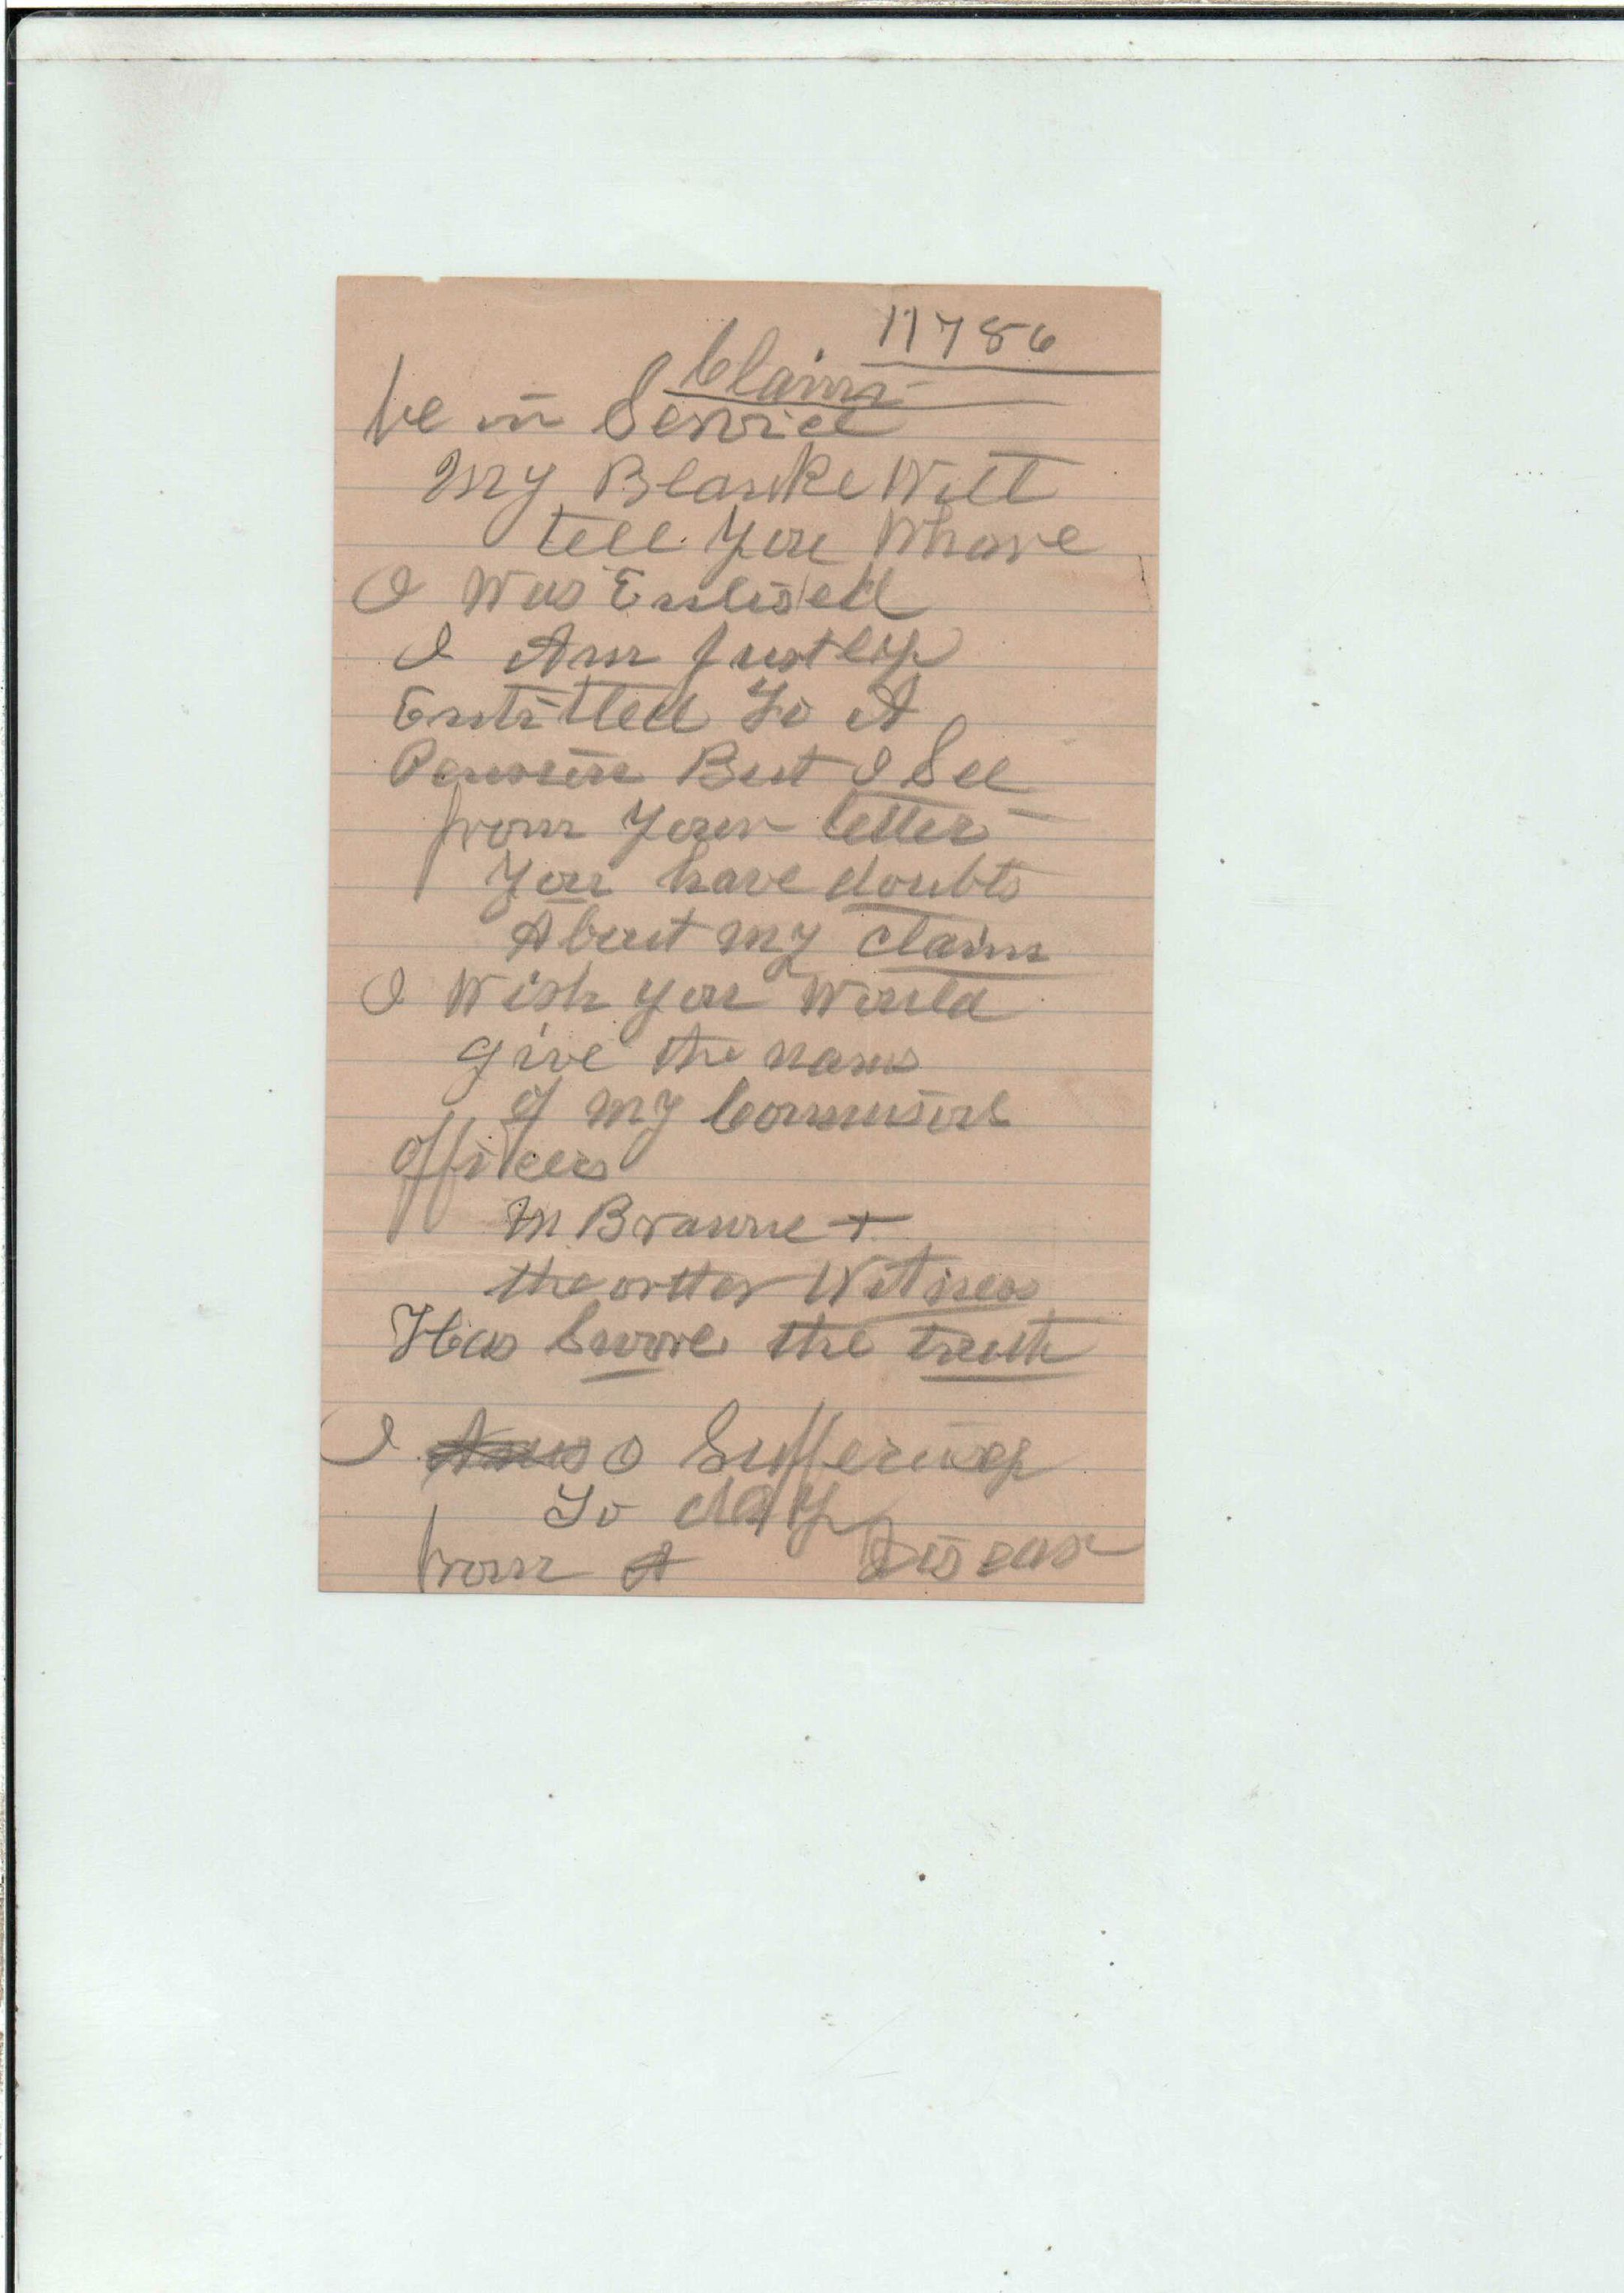 11786
Claim
be in Service
My Blanke Will
tell you Whare
I Was Enlised
I Am Justly
Entitled To A
Pension But I See
from Your letter
You have doubts
About my claim
I Wish you Would
give the names
of my
officers
M Browne +
the other Witness
Has Swore the truth
I Suffering
To day
from A Disease